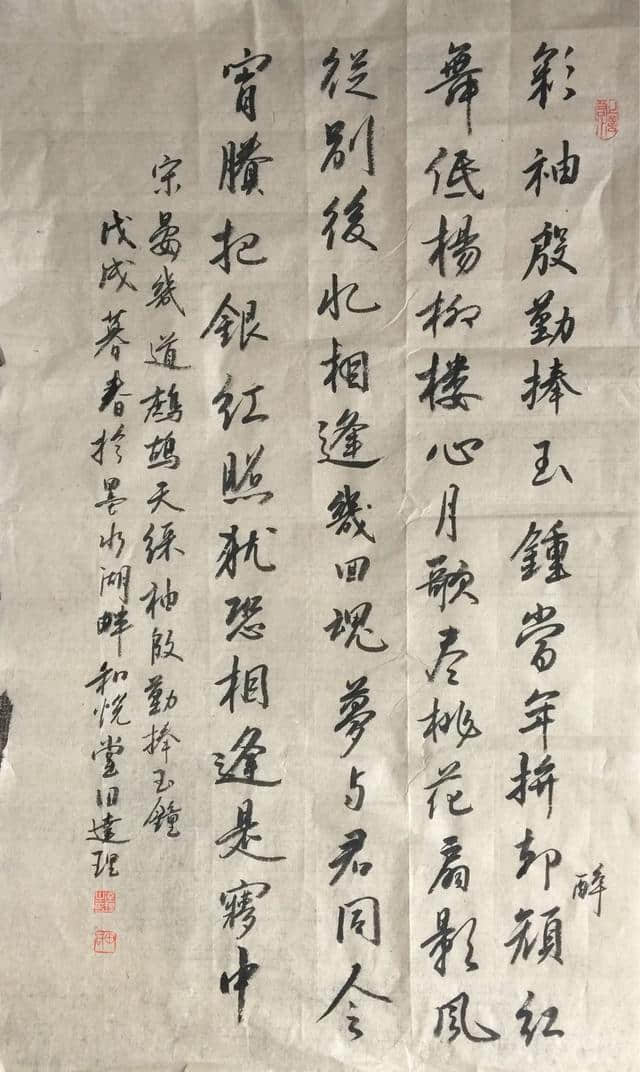 彩袖殷勤捧玉鍾當年拚却顏紅
醉
舞低楊柳樓心月歌尽桃花扇影風
從別後忆相逢幾回魂夢与君同今
宵賸把銀釭照犹恐相逢是夢中
宋晏幾道鷓鴣天綵袖殷勤捧玉鐘
戊戌暮春於墨水湖畔和悅堂日達理